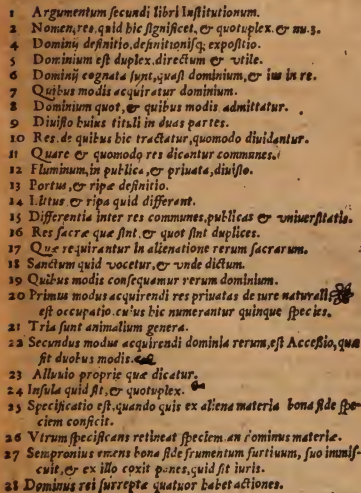 1 Argumentum secundi libri Institutionum.
2 Nomen, res, quid hic significet, & quotuplex. & nu. 3.
4 Dominij definitio, definitionisq; expositio.
5 Dominium est duplex, directum & vtile.
6 Dominij cognata sunt, quasi dominium, & ius in re.
7 Quibus modis acquiratur dominium.
8 Dominium quot, & quibus modis admittatur.
9 Diuisio huius tituli in duas partes.
10 Res, de quibus hic tractatur, quomodo diuidantur.
11 Quare & quomodo res dicantur communes.
12 Fluminum, in publica, & priuata, diuisio.
13 Portus, & ripæ definitio.
14 Littus & ripa quid differant.
15 Differentia inter res communes, publicas & vniuersitatis.
16 Res sacræ quæ sint, & quot sint duplices.
17 Quæ requirantur in alienatione rerum sacrarum.
18 Sanctum quid vocetur, & vnde dictum.
19 Quibus modis consequamur rerum dominium.
20 Primus modus acquirendi res priuatas de iure naturali
est occupatio. cu'us hic numerantur quinque species.
21 Tria sunt animalium genera.
22 Secundus modus acquirendi dominia rerum, est Accessio, quæ
fit duobus modis.
23 Alluuio proprie quæ dicatur.
24 Insula quid sit, & quotuplex.
25 Specificatio est, quando quis ex aliena materia bona fide spe-
ciem conficit.
26 Vtrum specificans retineat speciem an dominus materiæ.
27 Sempronius emens bona fide frumentum furtiuum, suo immis-
cuit, & ex illo coxit panes, quid sit iuris.
28 Dominus rei surreptæ quatuor habet actiones.